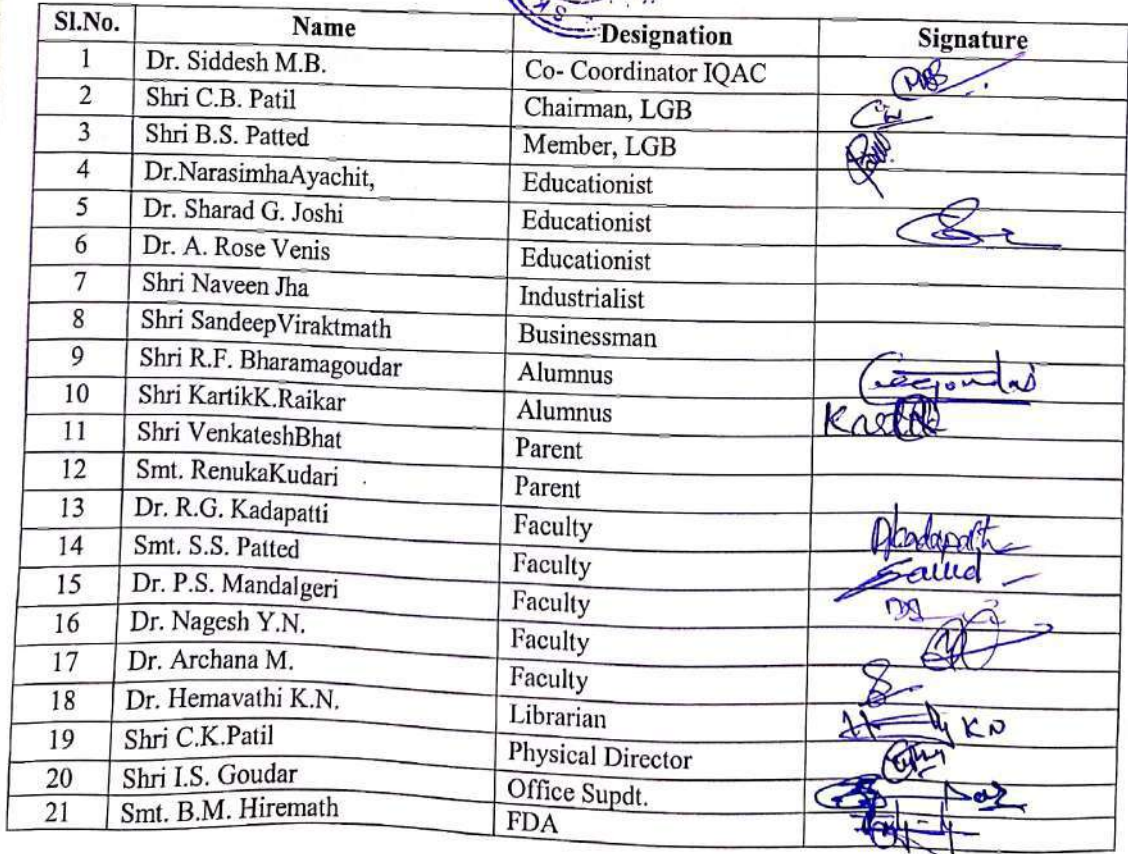 Sl.No. Name Designation Signature
1 Dr. Siddesh M.B. Co- Coordinator IQAC
2 Shri C.B. Patil Chairman, LGB
3 Shri B.S. Patted Member, LGB
4 Dr.NarasimhaAyachit, Educationist
5 Dr. Sharad G. Joshi Educationist
6 Dr. A. Rose Venis Educationist
7 Shri Naveen Jha Industrialist
8 Shri SandeepViraktmath Businessman
9 Shri R.F. Bharamagoudar Alumnus
10 Shri KartikK.Raikar Alumnus
11 Shri VenkateshBhat Parent
12 Smt. RenukaKudari Parent
13 Dr. R.G. Kadapatti Faculty
14 Smt. S.S. Patted Faculty
15 Dr. P.S. Mandalgeri Faculty
16 Dr. Nagesh Y.N. Faculty
17 Dr. Archana M. Faculty
18 Dr. Hemavathi K.N. Librarian KN
19 Shri C.K.Patil Physical Director
20 Shri I.S. Goudar Office Supdt.
21 Smt. B.M. Hiremath FDA